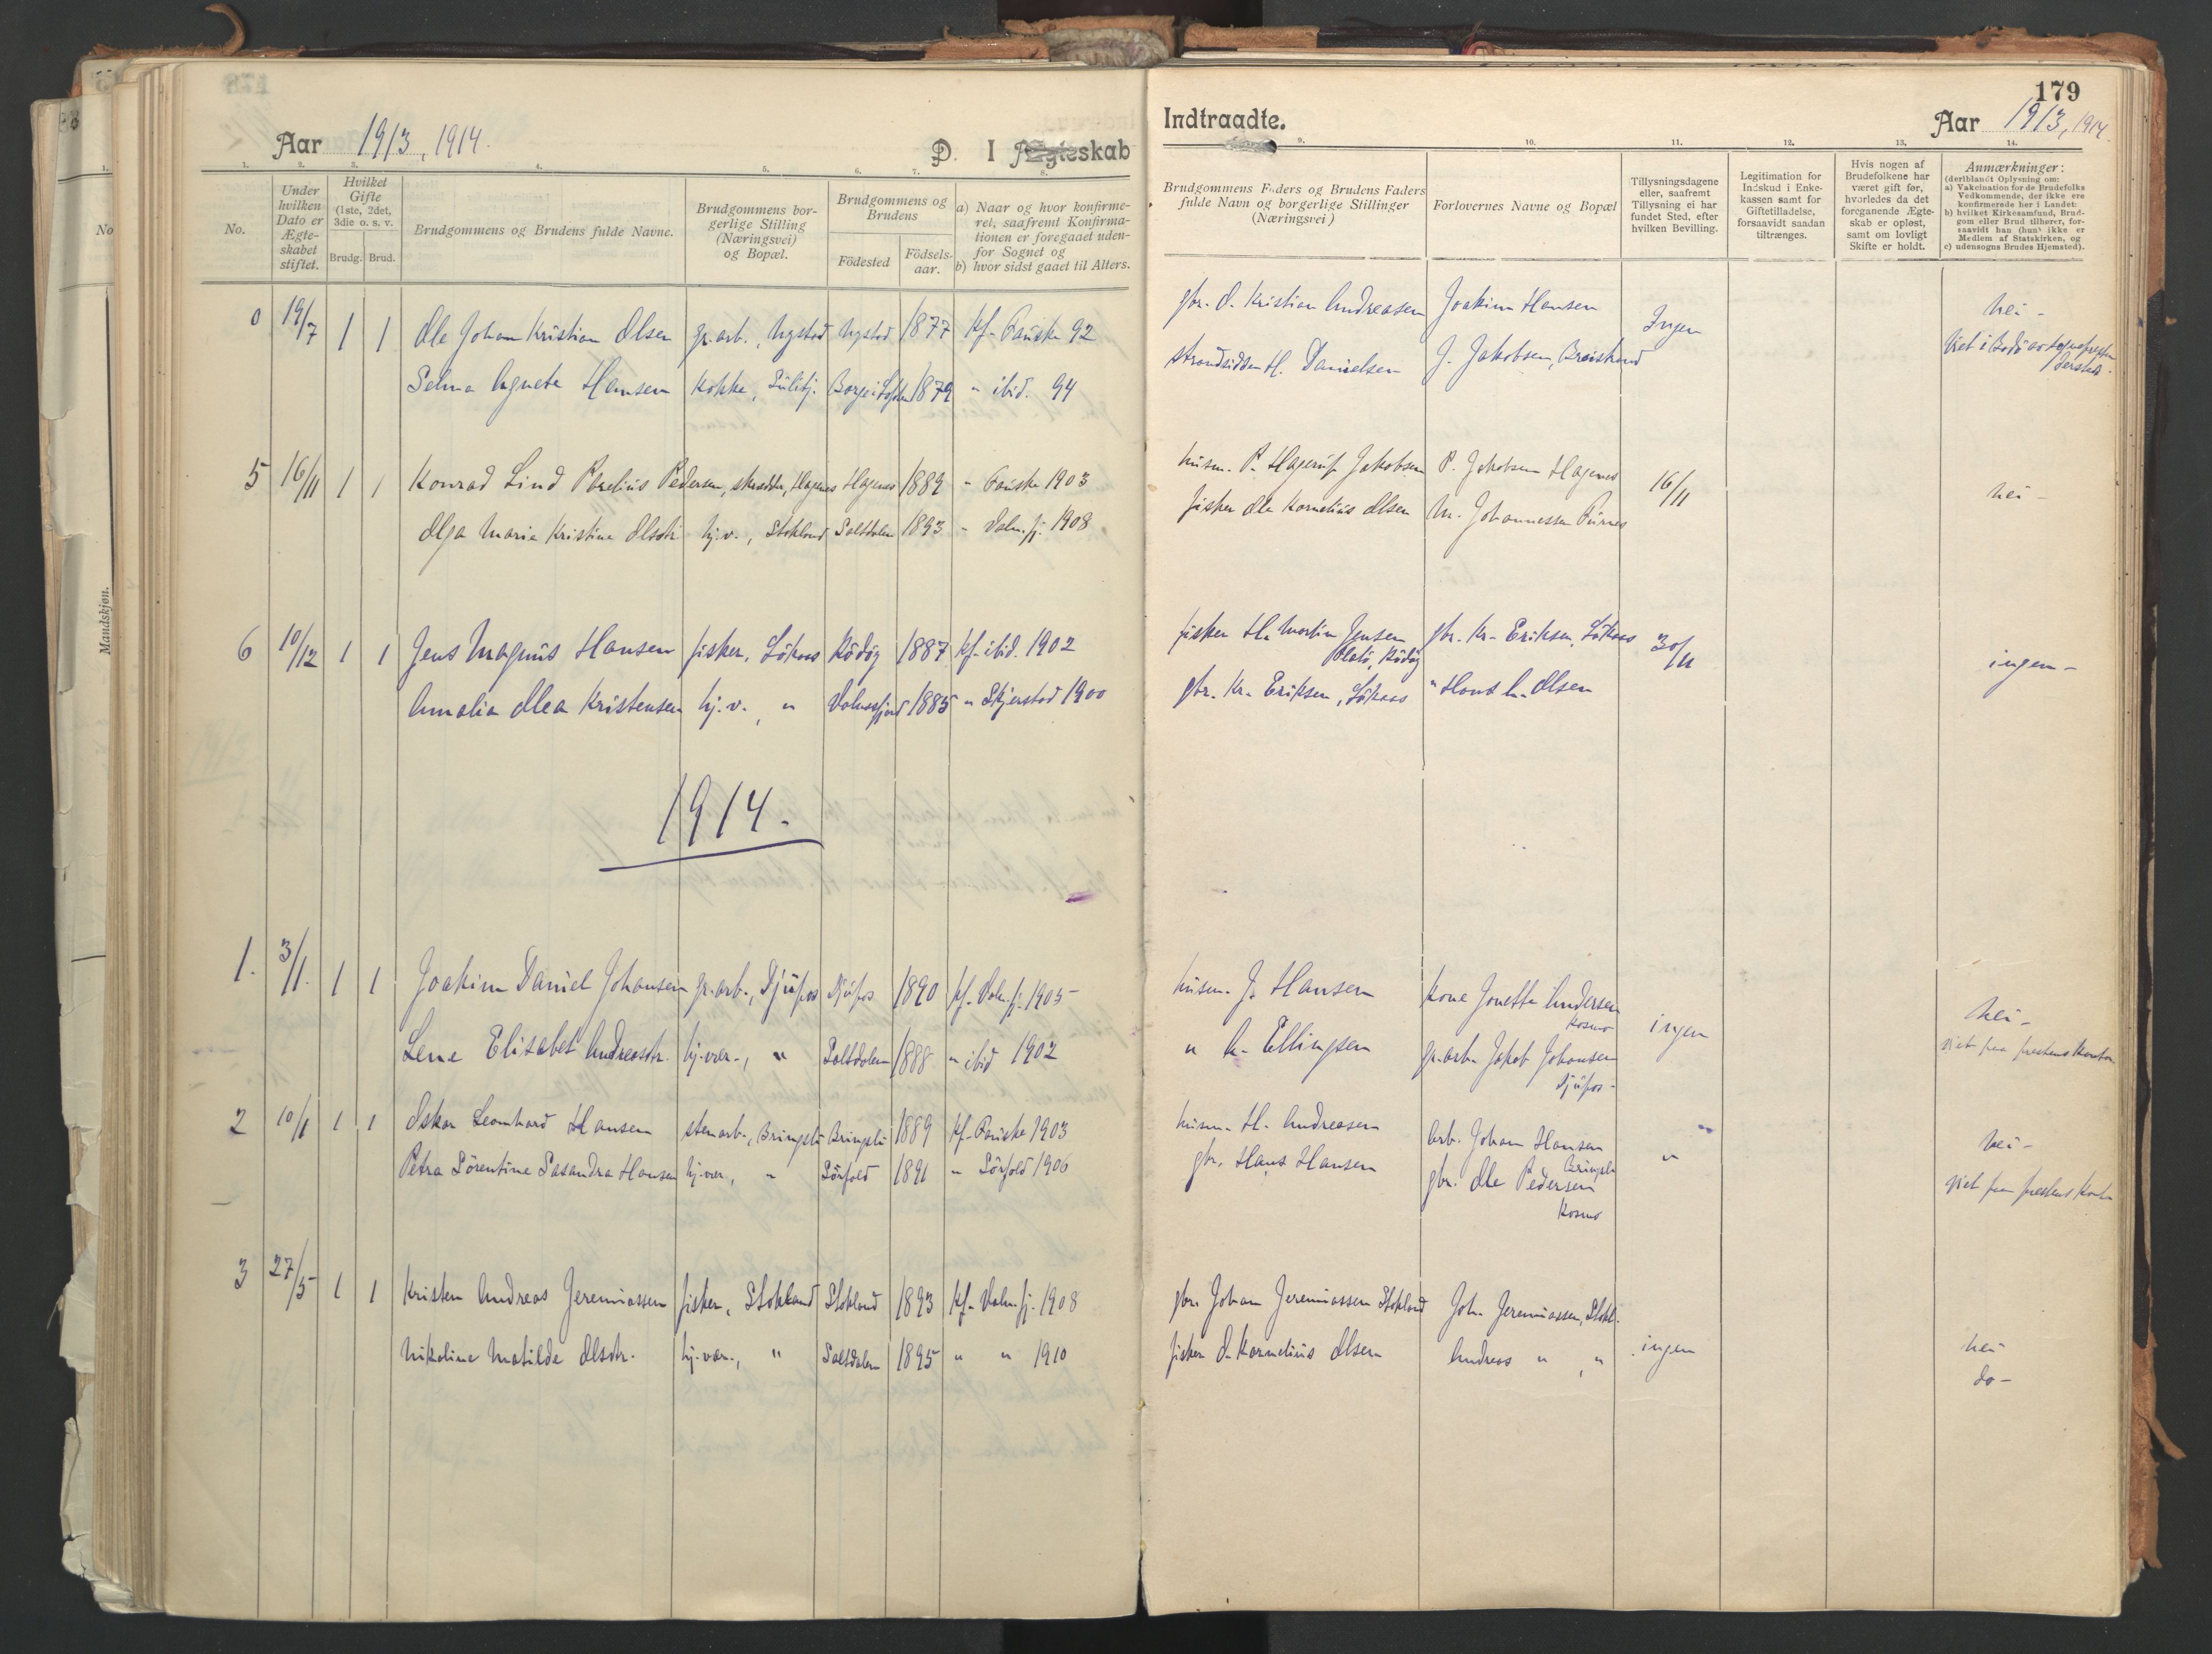 Aar 1913, 1914.
D. I Ægteskab
1. 2. 3. 4. 5. 6. 7. 8.
No.
Under hvilken Dato er Ægteskabet stiftet.
Hvilket Gifte (1ste, 2det, 3die o. s. v.
Brudg. Brud.
Brudgommens og Brudens fulde Navne.
Brudgommens borgerlige Stilling (Næringsvei) og Bopæl.
Brudgommens og Brudens
Fødested
Fødselsaar.
a) Naar og hvor konfirmeret, saafremt Konfirmationen er foregaaet udenfor Sognet og
b) hvor sidst gaaet til Alters.
0 19/7 1 1 Ole Johan Kristian Olsen gr.arb., Nystad Nystad 1877 Kf. Fauske 92
Selma Agnete Hansen Kokke, Sulitj. Borge i Lofoten 1879 " ibid. 94
5 16/11 1 1 Konrad Lind Parelius Pedersen, skrædder, Hagenes Hagenes 1889 " Fauske 1903
Olga Marie Kristine Olsdtr. hj.v., Stokland Saltdalen 1893 " Valn.fj. 1908
6 10/12 1 1 Jens Magnus Hansen fisker, Løkaas Rödöy 1887 Kf. ibid. 1902
Amalia Olea Kristensen hj.v. " Valnesfjord 1885 " Skjerstad 1900
1914.
1. 3/1. 1 1 Joakim Daniel Johansen gr.arb., Djupos Djupos 1890 Kf. Valn.fj. 1905
Lene Elisabet Andreasdtr. hj.vær., " Saltdalen 1888 " ibid 1902
2 10/1 1 1 Oskar Leonhard Hansen stenarb., Bringsli Bringsli 1889 Kf. Fauske 1903
Petra Sørentine Sasandra Hansen hj.vær., " Sørfold 1891 " Sørfold 1906
3 27/5 1 1 Kristen Andreas Jeremiassen fisker, Stokland Stokland 1893 Kf. Valn.fj. 1908
Nikoline Matilde Olsdtr. hj.vær., " Saltdalen 1895 " " 1910
179
Indtraadte.
Aar 1913, 1914.
9. 10. 11. 12. 13. 14.
Brudgommens Faders og Brudens Faders fulde Navn og borgerlige Stillinger (Næringsvei)
Forlovernes Navne og Bopæl
Tillysningsdagene eller, saafremt Tillysning ei har fundet Sted, efter hvilken Bevilling.
Legitimation for Indskud i Enkekassen samt for Giftetilladelse, forsaavidt saadan tiltrænges.
Hvis nogen af Brudefolkene har været gift før, hvorledes da det foregaaende Ægteskab er opløst, samt om lovligt Skifte er holdt.
Anmærkninger:
(deriblandt Oplysning om:
a) Vakcination for de Brudefolks Vedkommende, der ikke ere konfirmerede her i Landet:
b) hvilket Kirkesamfund, Brudgom eller Brud tilhører, forsaavidt han (hun) ikke er Medlem af Statskirken, og
c) udensogns Brudes Hjemsted).
gbr. O. Kristian Andreasen Joakim Hansen Ingen Nei -
strandsidder H. Danielsen J. Jakobsen, Breistrand Viet i Bodö av sogneprest
husm. P. Hagerup Jakobsen P. Jakobsen Hagenes 16/11 Nei -
fisker Ole Kornelius Olsen M. Johannessen Furnes
fisker H. Martin Jensen gbr. Kr. Eriksen, Løkaas 30/11 ingen -
Rödöy
gbr. Kr. Eriksen, Løkaas " Hans A. Olsen
husm. J. Hansen Kone Jonetta Andersen Nei -
Kosmo ingen
" A. Ellingsen gr.arb. Jakob Johansen viet paa prestens kontor
Djupos -
husm. H. Andreasen Arb. Johan Hansen Nei -
Bringsli "
gbr. Hans Hansen gbr. Ole Pedersen viet paa prestens kontor
Kosmo
gbr. Johan Jeremiassen Stokland Joh. Jeremiassen, Stokl. Nei
fisker O. Kornelius Olsen Andreas " , " ingen do -
Mandskjøn.